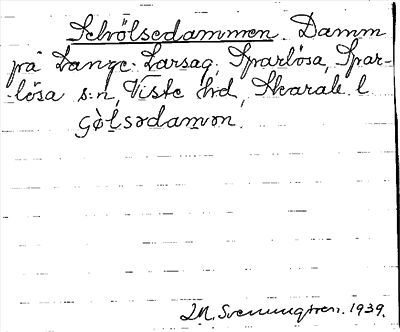 Schölsedammen. Damm
på Lange-Larsag, Sparlösa, Spar-
lösa s:n, Viste hd, Skarab. l
gòlsədamən.
I.M. Svenungsson. 1939.